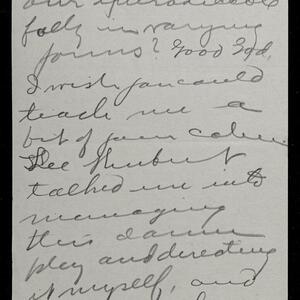 our
folly in varying
forms? Good God,
I wish you could
teach me a
bit of your calm.
Lee Shubert
talked me into
managing
this damn
play and directing
it myself, and